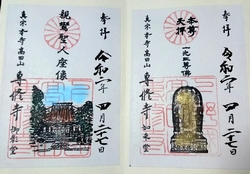 奉拝
令和二年四月二十七日
本尊
天拝
一光三尊佛
真宗本寺高田山
専修寺 如来堂
奉拝
令和二年四月二十七日
親鸞聖人座像
真宗本寺高田山
専修寺 御影堂